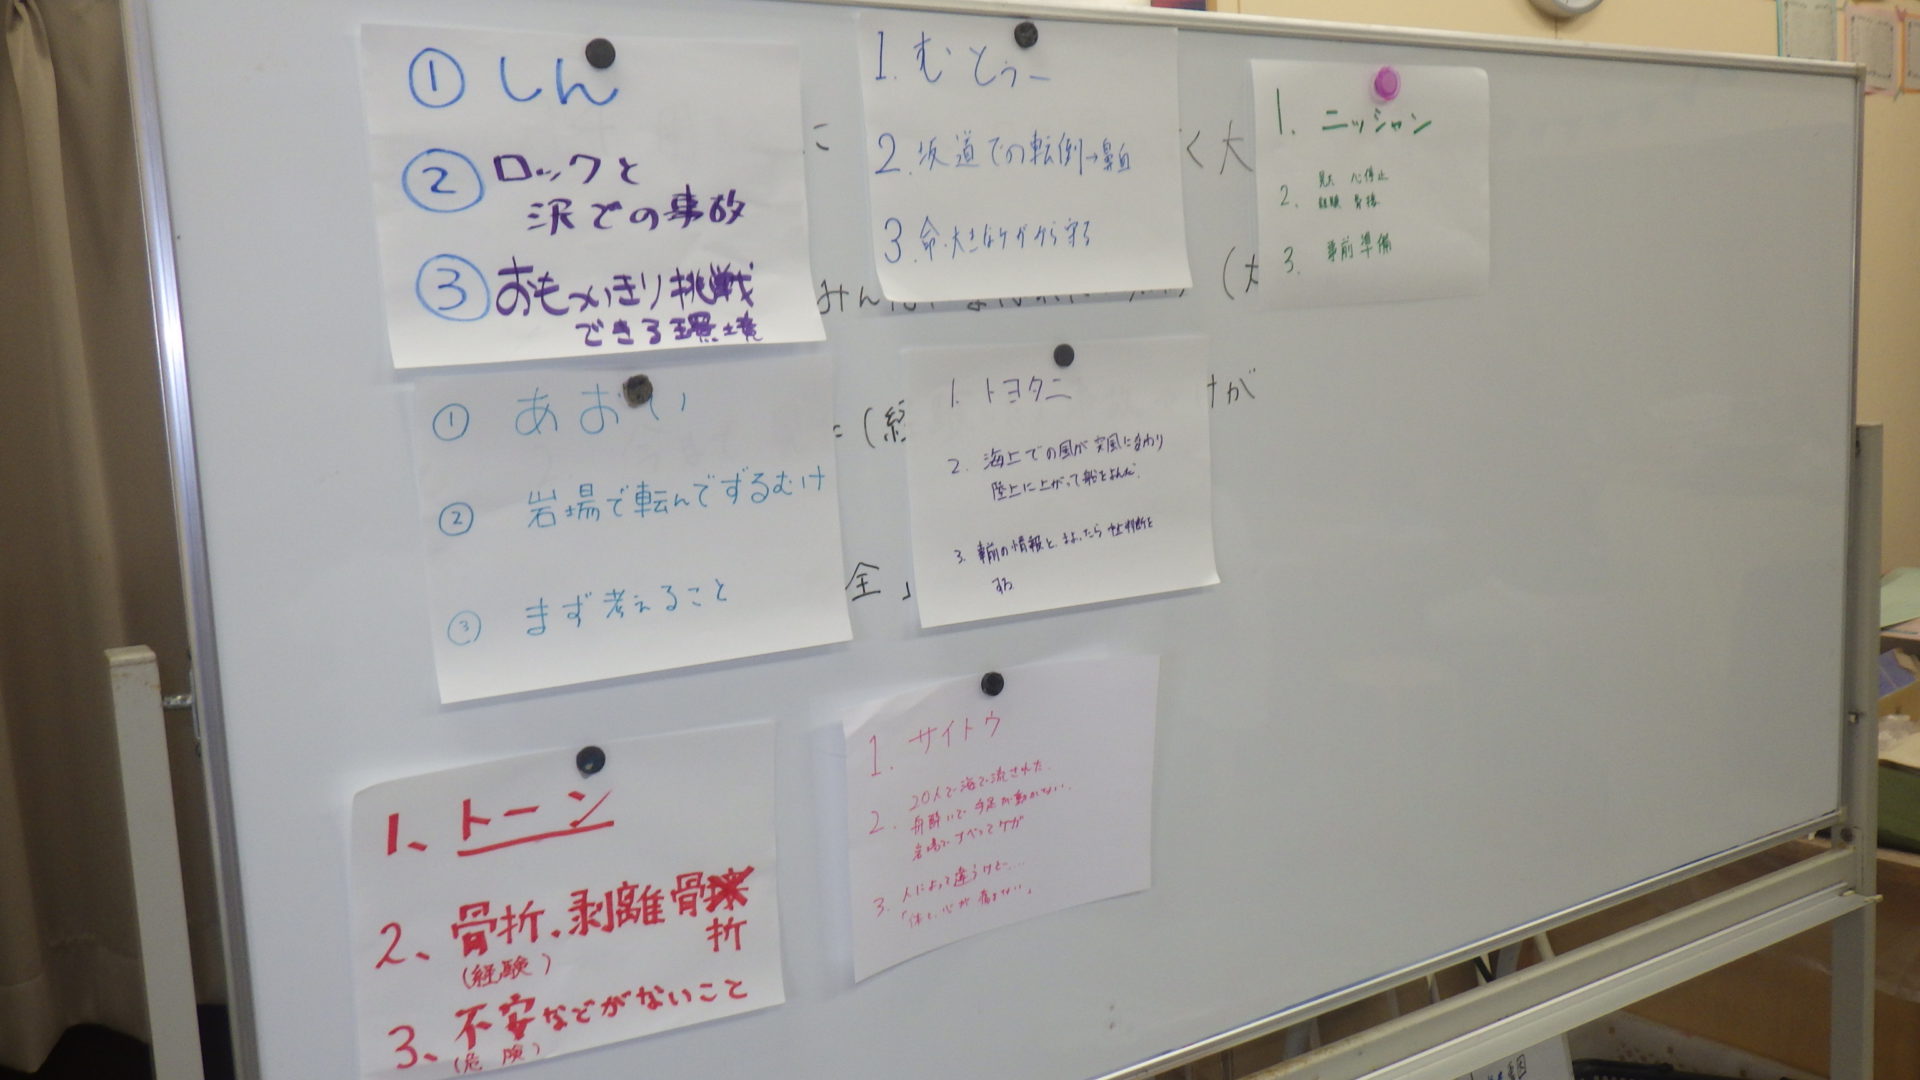 ① しん
② ロックと
沢での事故
③ おもいっきり挑戦
できる環境
1. むとぅー
2. 坂道での転倒→鼻血
3. 命・大きなケガから守る
1. ニッシャン
2. 見た 心停止
経験
3. 事前準備
に
く大
みん
(大
① あおい
② 岩場で転んでずるむけ
③ まず考えること
1. トヨタニ
2. 海上での風が突風にまわり
陸上に上がって船をよんだ。
3. 事前の情報と、まよったら
する
= (経
けが
全」
1、トーン
2、骨折、剥離骨折
(経験)
3、不安などがないこと
(危険)
1. サイトウ
2. 20人で海で流された。
舟酔いで手足が動かない。
岩場ですべってケガ
3. 人によって違うけど....
「体と、心が痛まない」